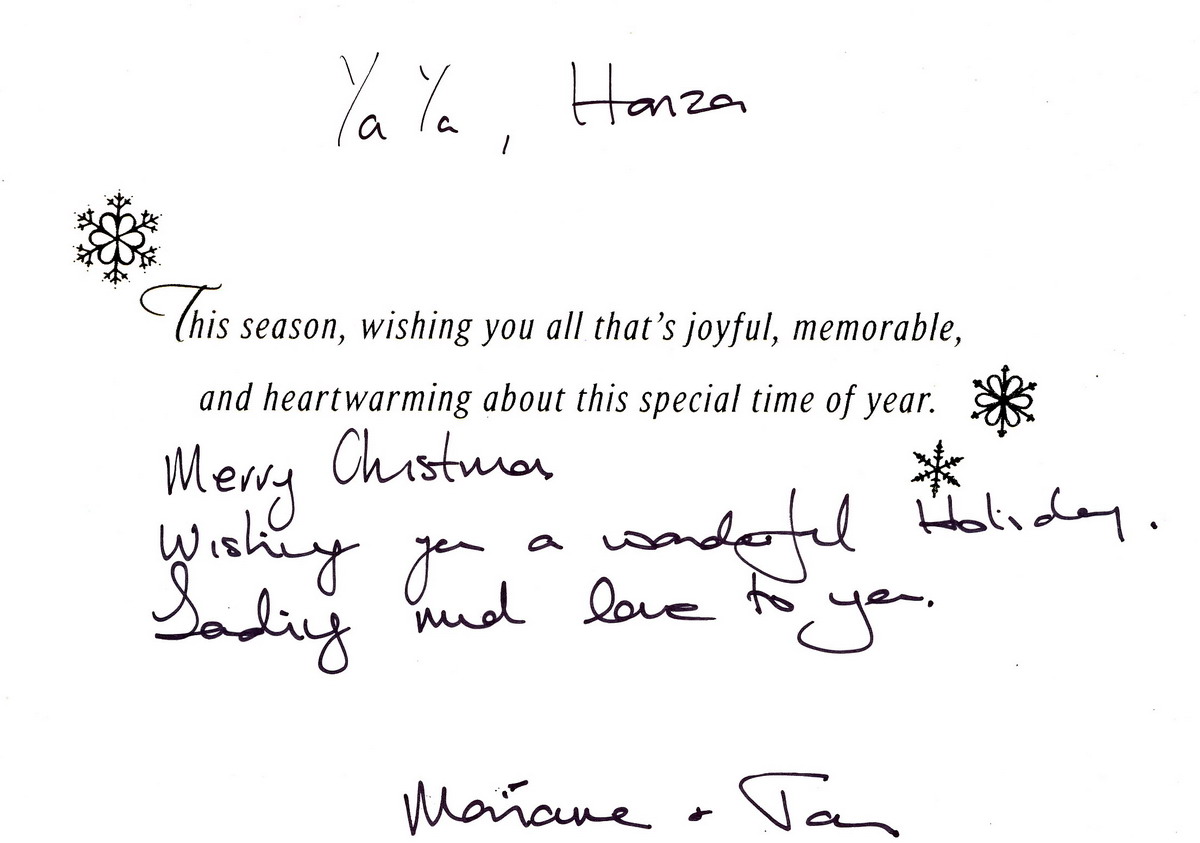 Ya Ya, Hanza
This season, wishing you all that's joyful, memorable,
and heartwarming about this special time of year.
Merry Christmas
Wishing you a wonderful Holiday.
Sending much love to you.
Mariane +